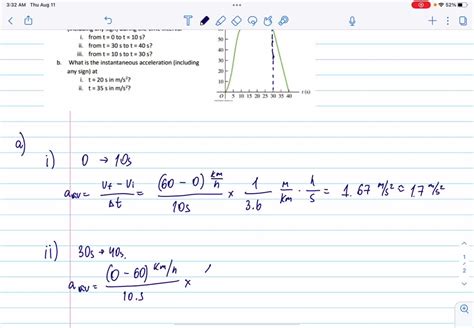 3:32 AM Thu Aug 11
52%
i. from t = 0 to t = 10 s?
ii. from t = 30 s to t = 40 s?
iii. from t = 10 s to t = 30 s?
b. What is the instantaneous acceleration (including
any sign) at
i. t = 20 s in m/s²?
ii. t = 35 s in m/s²?
50
40
30
20
10
0 5 10 15 20 25 30 35 40 t (s)
a)
i) 0 → 10s
a av = Vf - Vi / Δt = (60 - 0) km/h / 10s × 1/3.6 m/km · h/s = 1.67 m/s² ≈ 1.7 m/s²
ii) 30s → 40s.
a av = (0 - 60) km/h / 10.s ×
1
2